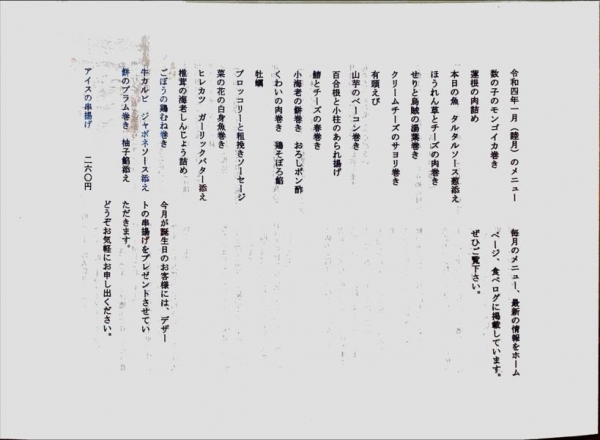 令和四年一月（睦月）のメニュー
数の子のモンゴイカ巻き
蓮根の肉詰め
本日の魚　タルタルソース葱添え
ほうれん草とチーズの肉巻き
せりと烏賊の湯葉巻き
クリームチーズのサヨリ巻き
有頭えび
山芋のベーコン巻き
百合根と小柱のあられ揚げ
鱈とチーズの春巻き
小海老の餅巻き　おろしポン酢
くわいの肉巻き　鶏そぼろ餡
牡蠣
ブロッコリーと粗挽きソーセージ
菜の花の白身魚巻き
ヒレカツ　ガーリックバター添え
椎茸の海老しんじょう詰め
ごぼうの鶏むね巻き
牛カルビ　ジャポネソース添え
餅のプラム巻き　柚子餡添え
アイスの串揚げ　二六〇円
毎月のメニュー、最新の情報をホーム
ページ、食べログに掲載しています。
ぜひご覧下さい。
今月が誕生日のお客様には、デザー
トの串揚げをプレゼントさせてい
ただきます。
どうぞお気軽にお申し出ください。